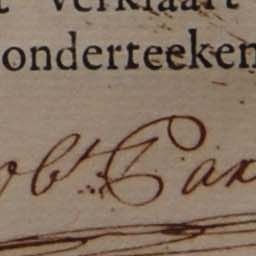 t verklaart
onderteeken
obt. Can